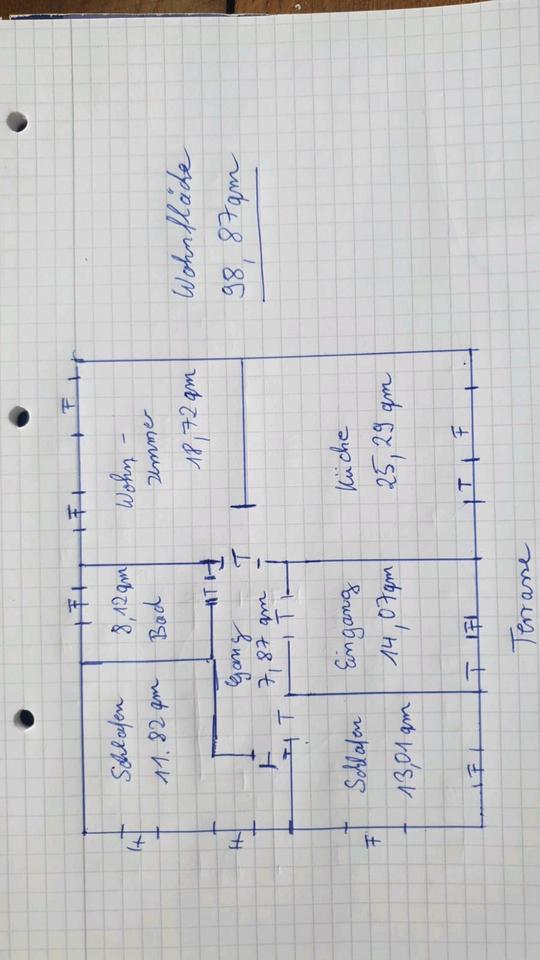 Schlafen
11.82 qm
F
F
8,12 qm
Bad
F
T
Wohn-
zimmer
18,72 qm
F
F
Gang
7,87 qm
T
T
T
T
Schlafen
13,01 qm
F
F
Eingang
14,07 qm
T
F
Küche
25,29 qm
T
F
Terrasse
Wohnfläche
98,87 qm